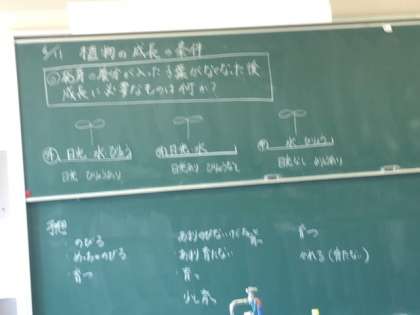 5/11 植物の成長の条件
発芽の養分が入った子葉がなくなった後
成長に必要なものは何か?
日光 水 ひりょう
日光 水
水 ひりょう
日光 ひりょうあり
日光あり ひりょうなし
日光なし ひりょうあり
予想
のびる
めっちゃのびる
育つ
あまり育たない
育つ
少し育つ
育つ
かれる(育たない)